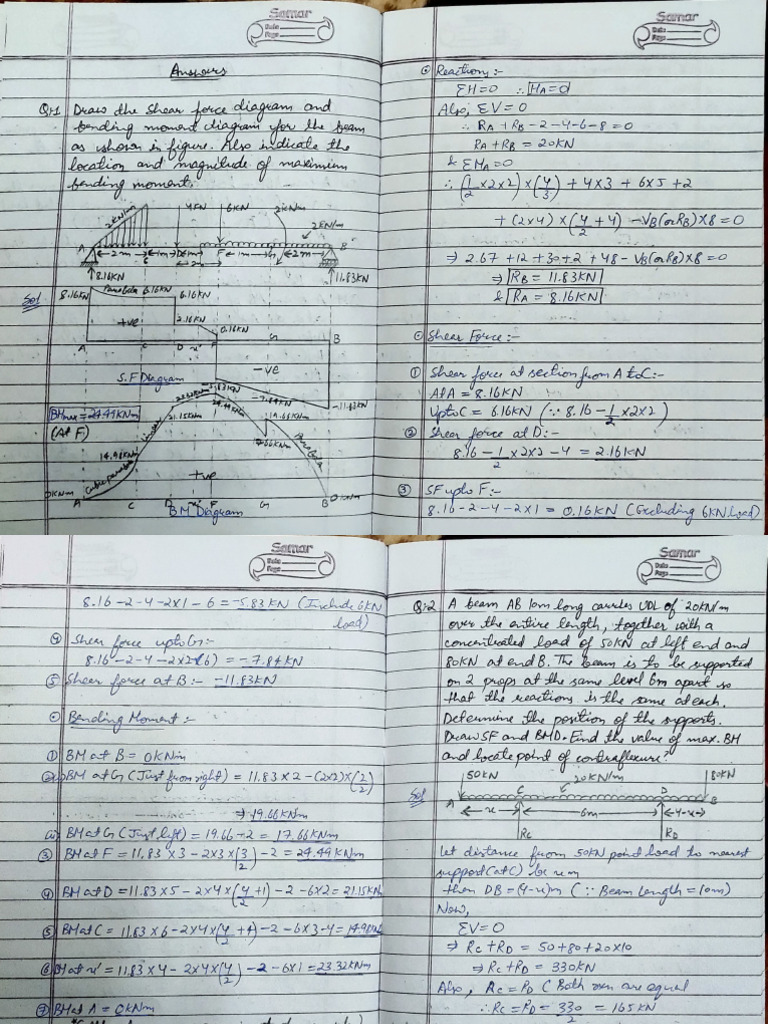 Samar
Date
Page
Answers
Q:1 Draw the shear force diagram and
bending moment diagram for the beam
as shown is figure. Also indicate the
location and magnitude of maximum
bending moment.
2KN/m 4KN 6KN 2KNm 2KN/m
A 2m C 1m D 1m F 1m G 2m B
2m
8.16KN 11.83KN
Sol
8.16KN Parabola 6.16KN 6.16KN
2.16KN 0.16KN
+ve
A C D F G B
-ve
S.F Diagram -5.83KN -7.84KN -11.83KN
BMmax = 24.49KNm
(At F)
23.32KNm 24.49KNm 19.66KNm
21.15KNm 17.66KNm
14.98KNm linear Parabola
Cubic parabola
+ve
0KNm A C D x' F G B 0KNm
BM Diagram
Samar
Date
Page
⊙ Reactions:-
ΣH=0 ∴ HA=0
Also, ΣV=0
∴ RA+RB-2-4-6-8=0
RA+RB=20KN
& ΣMA=0
∴ (1/2 x2x2) x (4/3) + 4x3 + 6x5 + 2
+ (2x4) x (4/2 + 4) - VB(or RB)x8 = 0
⇒ 2.67 +12 +30+2 +48 - VB(or RB)x8=0
⇒ RB = 11.83KN
& RA = 8.16KN
⊙ Shear Force:-
① Shear force at section from A to C:-
At A = 8.16KN
Upto C = 6.16KN (∵ 8.16 - 1/2 x2x2)
② Shear force at D:-
8.16 - 1/2 x2x2 - 4 = 2.16KN
③ SF upto F:-
8.16-2-4-2x1 = 0.16KN (Excluding 6KN load)
Samar
Date
Page
8.16-2-4-2x1-6 = -5.83KN (Include 6KN
load)
④ Shear force upto G:-
8.16-2-4-2x2-(6) = -7.84KN
⑤ Shear force at B:- -11.83KN
⊙ Bending Moment:-
① BM at B = 0KNm
② (i) BM at G (Just from right) = 11.83x2-(2x2)x(2/2)
⇒ 19.66KNm
(ii) BM at G (Just left) = 19.66-2 = 17.66KNm
③ BM at F = 11.83x3-2x3x(3/2)-2 = 24.49KNm
④ BM at D = 11.83x5-2x4x(4/2+1)-2-6x2=21.15KNm
⑤ BM at C = 11.83x6-2x4x(4/2+1)-2-6x3-4=14.98KNm
⑥ BM at x' = 11.83x4-2x4x(4/2)-2-6x1=23.32KNm
⑦ BM at A = 0KNm
Samar
Date
Page
Q:2 A beam AB 10m long carries UDL of 20KN/m
over the entire length, together with a
concentrated load of 50KN at left end and
80KN at end B. The beam is to be supported
on 2 props at the same level 6m apart so
that the reactions is the same at each.
Determine the position of the supports.
Draw SF and BMD. Find the value of max. BM
and locate point of contraflexure?
50KN 20KN/m 80KN
Sol A C D B
x 6m (4-x)
RC RD
Let distance from 50KN point load to nearest
support (at C) be xm
then DB = (4-x)m (∵ Beam length = 10m)
Now,
ΣV=0
⇒ RC+RD = 50+80+20x10
⇒ RC+RD = 330KN
Also, RC=RD (Both are equal
∴ RC=RD = 330/2 = 165KN